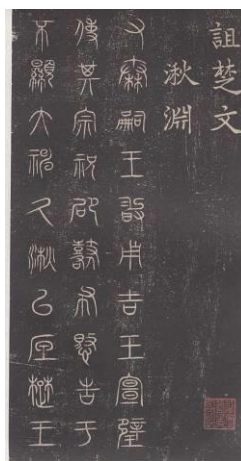 詛楚文
湫淵
又秦嗣王敢用吉玉宣璧
使其宗祝邵鼛布憝告于
不顯大神久湫㠯厎楚王